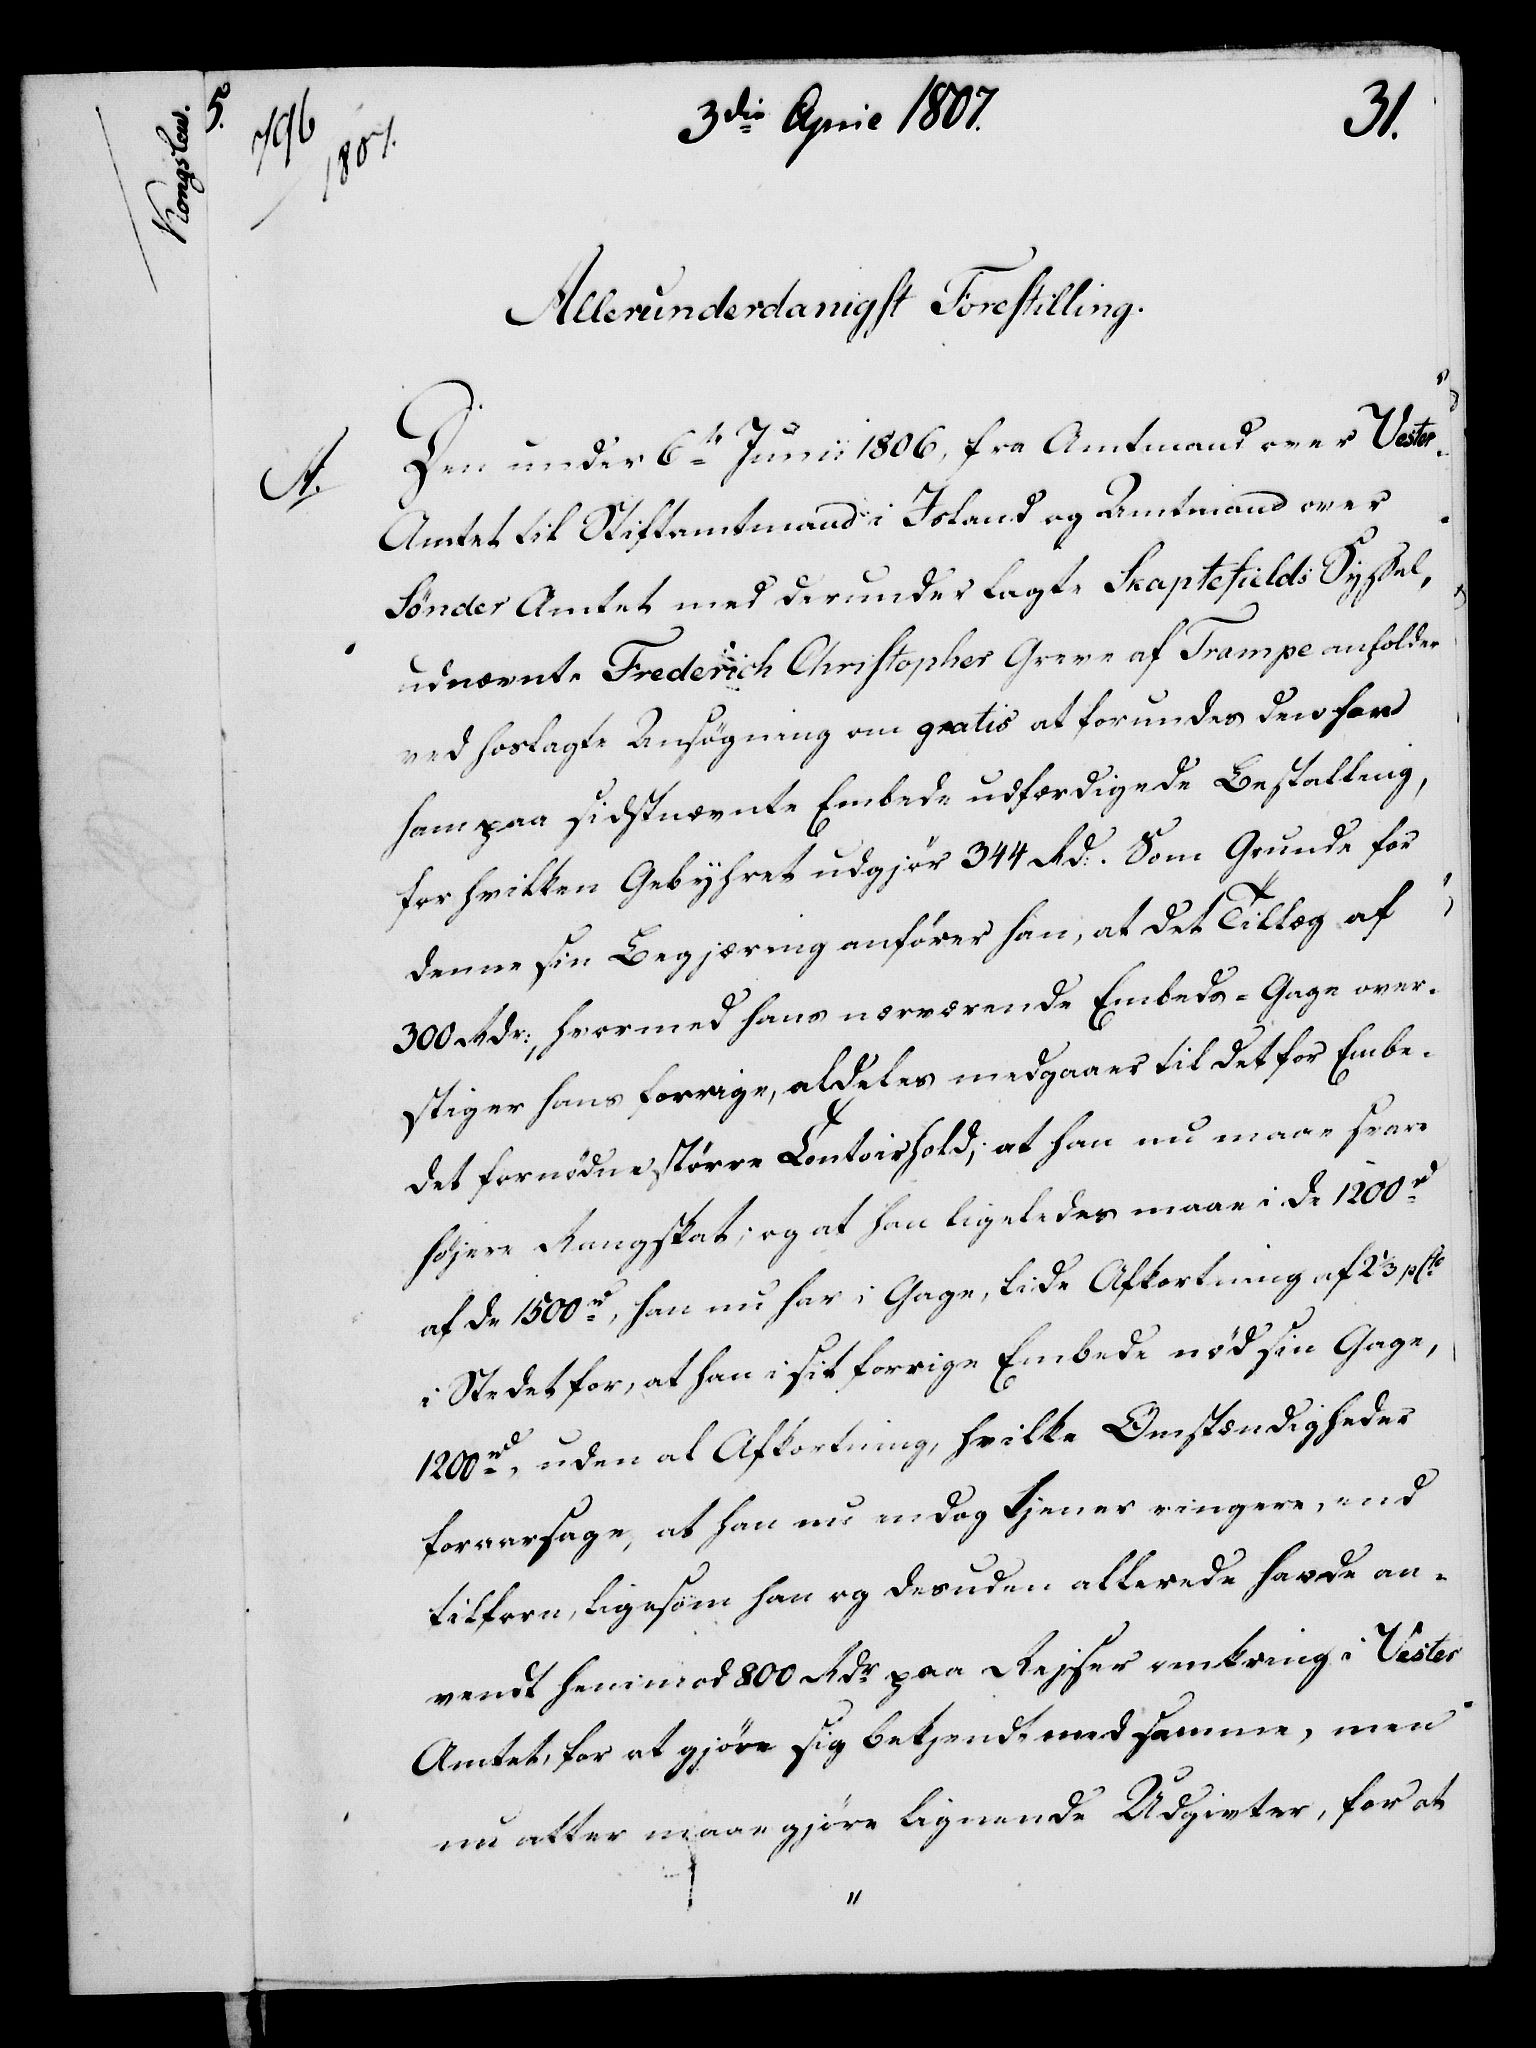 Kongslew.
5.
796
1807.
3die April 1807.
31.
Allerunderdanigst Forestilling.
A.
Den under 6te Junii 1806, fra Amtmand over Vester-
Amtet til Stiftamtmand i Island og Amtmand over
Sönder Amtet med derunder lagte Skaptefields Syssel,
udnævnte Frederich Christopher Greve af Trampe anholder
ved hoslagte Ansögning om gratis at forundes den for
ham paa sidstnævnte Embede udfærdigede Bestalling,
for hvilken Gebyhret udgjör 344 Rd:. Som Grunde for
denne sin Begjæring anförer han, at det Tillæg af
300 Rdr:, hvormed hans nærværende Embeds-Gage over-
stiger hans forrige, aldeles medgaaer til det for Embe-
det fornödne större Contoirhold; at han nu maae svare
höjere Rangskat; og at han ligeledes maae i de 1200 rd
af de 1500 rd, han nu har i Gage, lide Afkortning af 2⅓ pCto
i Stedet for, at han i sit forrige Embede nöd sin Gage,
1200 rd, uden al Afkortning, hvilke Omstændigheder
foraarsage, at han nu endog tjener ringere, end
tilforn, ligesom han og desuden allerede havde an-
vendt henimod 800 Rdr paa Rejser omkring i Vester
Amtet, for at gjöre sig bekjendt med samme, men
nu atter maae gjöre lignende Udgivter, for at
"